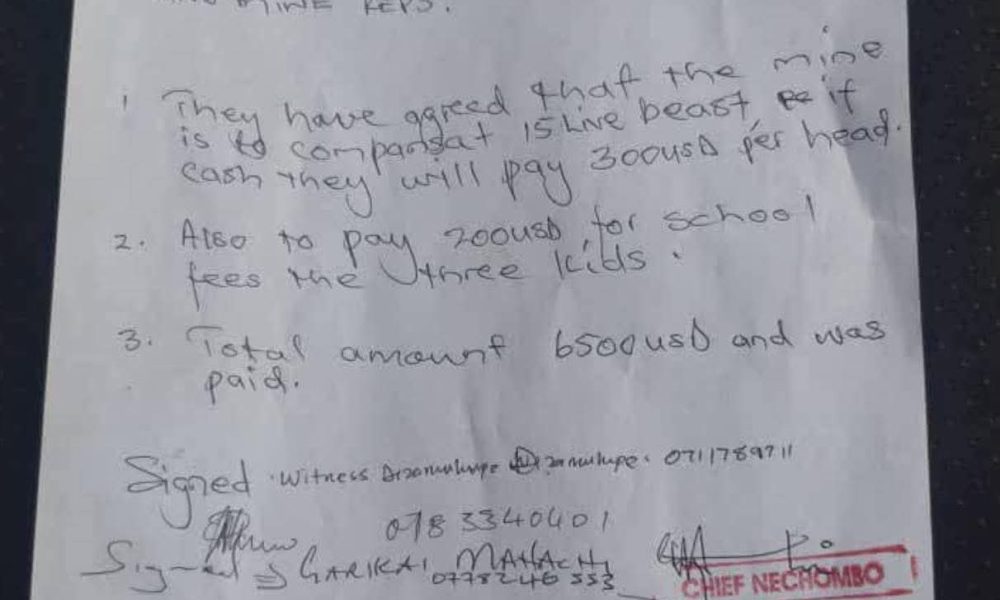 MINE REPS.
1 They have agreed that the mine
is to compansat 15 Live beast, if
cash they will pay 300usD per head.
2. Also to pay 200usD for school
fees the three kids.
3. Total amount 6500usD and was
paid.
Signed Witness 0711789711
0783340401
Signed GARIKAI
0778246353
CHIEF NECHOMBO